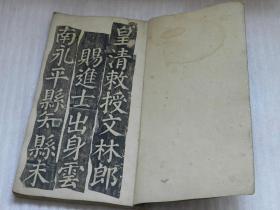 皇清敕授文林郎
賜進士出身雲
南永平縣知縣未